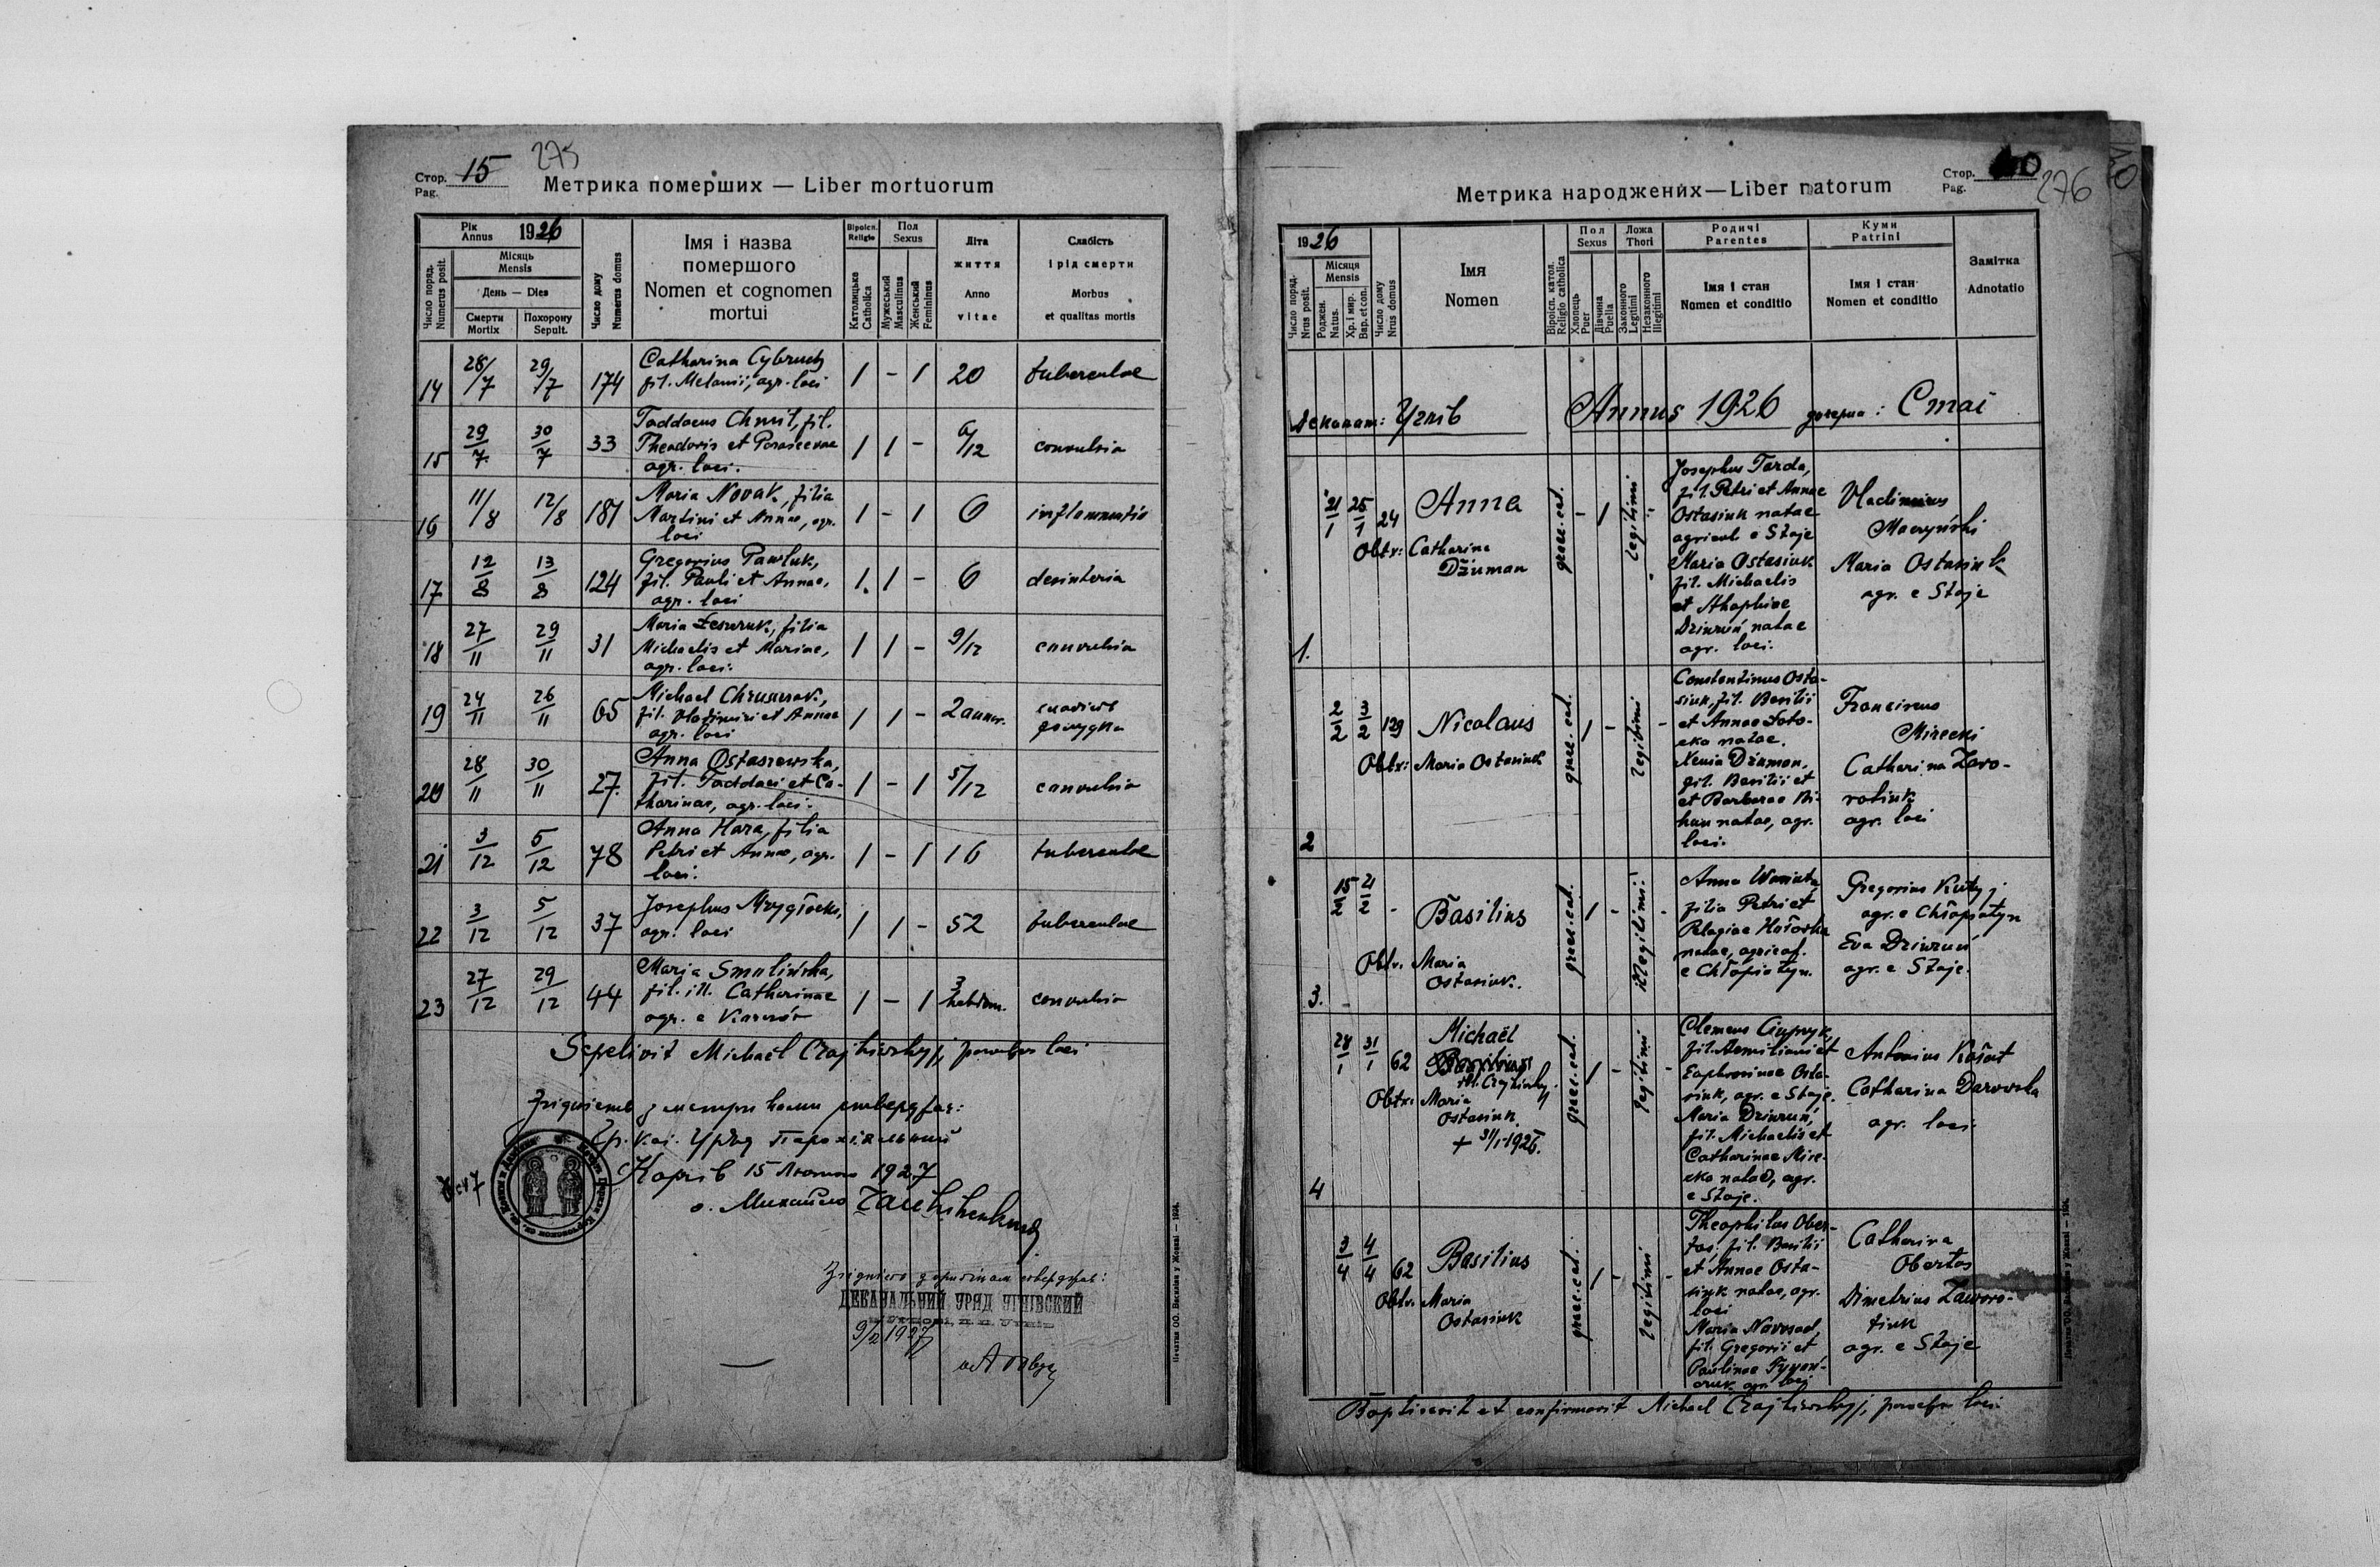 Стор. 15 275
Pag.
Метрика померших — Liber mortuorum
Рік
Annus 1926
Число поряд.
Numerus posit.
Місяць
Mensis
День — Dies
Смерти
Mortix
Похорону
Sepult.
Число дому
Numerus domus
Імя і назва
помершого
Nomen et cognomen
mortui
Віроісп.
Religio
Католицька
Catholica
Пол
Sexus
Мужеський
Masculinus
Женський
Femininus
Літа
життя
Anno
vitae
Слабість
і рід смерти
Morbus
et qualitas mortis
14 28/7 29/7 174 Catharina Cybruch
fil. Melanii, agr. loci 1 – 1 20 tuberculoe
15 29/7 30/7 33 Taddaeus Chmil, fil.
Theodoris et Parascevae
agr. loci. 1 1 – 6/12 convulsia
16 11/8 12/8 181 Maria Novak, filia
Martini et Annae, agr.
loci 1 – 1 6 inflammatio
17 12/8 13/8 124 Gregorius Pawluk,
fil. Pauli et Annae,
agr. loci 1. 1 – 6 desinteria
18 27/11 29/11 31 Maria
Michaelis et Mariae,
agr. loci. 1 1 – 9/12 convulsia
19 24/11 26/11 65 Michael
fil. Vladimiri et Annae
agr. loci 1 1 – 2
20 28/11 30/11 27. Anna Ostaszewska,
fil. Taddaei et Ca-
tharinae, agr. loci. 1 – 1 5/12 convulsia
21 3/12 5/12 78 Anna Hara, filia
Petri et Annae, agr.
loci. 1 – 1 16 tuberculoe
22 3/12 5/12 37 Josephus
agr. loci 1 1 – 52 tuberculoe
23 27/12 29/12 44 Maria Smolińska,
fil. ill. Catharinae
agr. e 1 – 1 3
hebdom. convulsia
Sepelivit Michaël Czajkiwskyj, parochus loci
Гр. кат. Уряд Парохіяльний
Карів 15 Лютого 1927
о. Михайло Чайківський
ДЕКАНАЛЬНИЙ УРЯД УГНІВСКИЙ
Печатня ОО. Василіян у Жовкві — 1924.
Стор. 10
Pag. 276
Метрика народжених—Liber natorum
1926
Число поряд.
Nrus posit.
Місяця
Mensis
Роджен.
Natus.
Хр. і мир.
Bap. et con.
Число дому
Nrus domus
Імя
Nomen
Віроісп. катол.
Religio catholica
Пол
Sexus
Хлопець
Puer
Дівчина
Puella
Ложа
Thori
Законного
Legitimi
Незаконного
Illegitimi
Родичі
Parentes
Імя і стан
Nomen et conditio
Куми
Patrini
Імя і стан
Nomen et conditio
Замітка
Adnotatio
Деканат: Угнів Annus 1926 дочерна: Стаї
1. 21/1 25/1 24 Anna
Obtx: Catharina
Dżuman
graec. cat. – 1 legitimi
Josephus Tarda,
fil. Petri et Annae
Ostasiuk natae
agricol e Staje
Maria Ostasiuk
fil. Michaelis
et Ahaphiae
Dziuruń natae
agr. loci.
Vladimirus
Maczyński
Maria Ostasiuk
agr. e Staje
2 2/2 3/2 129 Nicolaus
Obtx: Maria Ostasiuk
graec. cat. 1 – legitimi –
Constantinus Osta-
siuk, fil. Basilii
et Annae Soto-
cka natae.
Xenia Dżuman,
fil. Basilii et
et Barbarae Bi-
hun natae, agr.
loci.
Franciscus
Mirecki
Catharina Zavo-
rotiuk
agr. loci
3. 15/2 21/2 – Basilius
Obtx. Maria
Ostasiuk.
graec. cat. 1 – illegitimi –
Anna
filia Petri et
Pelagiae Hołovka
natae, agricol.
e Chłopiatyn.
Gregorius Kutyj
agr. e Chłopiatyn
Eva Dziuruń
agr. e Staje.
4 28/1 31/1 62 Michaël
Basilius
M. Czajkiwskyj
Obtx: Maria
Ostasiuk.
+ 31/1 1926.
graec. cat. 1 – legitimi –
Clemens
fil. Aemiliani et
Euphrosinae Osta-
siuk, agr. e Staje.
Maria Dziuruń,
fil. Michaelis et
Catharinae Mire-
cka natae, agr.
e Staje.
Antonius
Catharina Darovska
agr. loci.
3/4 4/4 62 Basilius
Obtx. Maria
Ostasiuk
graec. cat. 1 – legitimi –
Theophilus Ober-
tas, fil. Basilii
et Annae Osta-
siuk natae, agr.
loci
Maria Novosad,
fil. Gregorii et
Paulinae
agr. loci
Catharina
Obertas
Dimetrius Zaworo-
tiuk
agr. e Staje
Baptisavit et confirmavit Michael Czajkiwskyj, parochus loci.